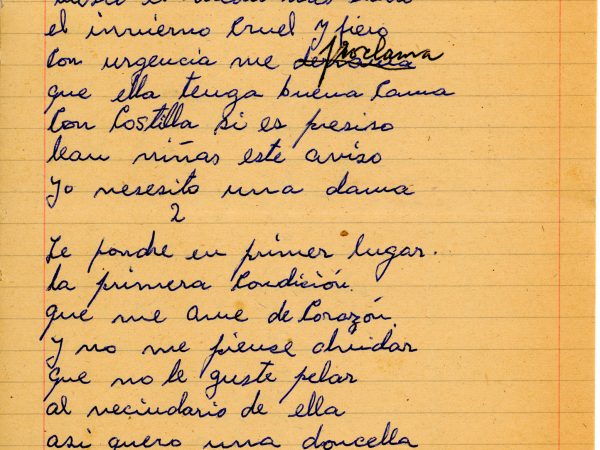 el invierno Cruel y fiero
Con urgencia me proclama
que ella tenga buena Cama
Con Costilla si es presiso
lean niñas este aviso
yo nesesito una dama
2
Le pondre en primer lugar.
la primera Condición.
que me ame de Corazón.
y no me piense olvidar
que no le guste pelar
al vecindario de ella
asi quero una doncella